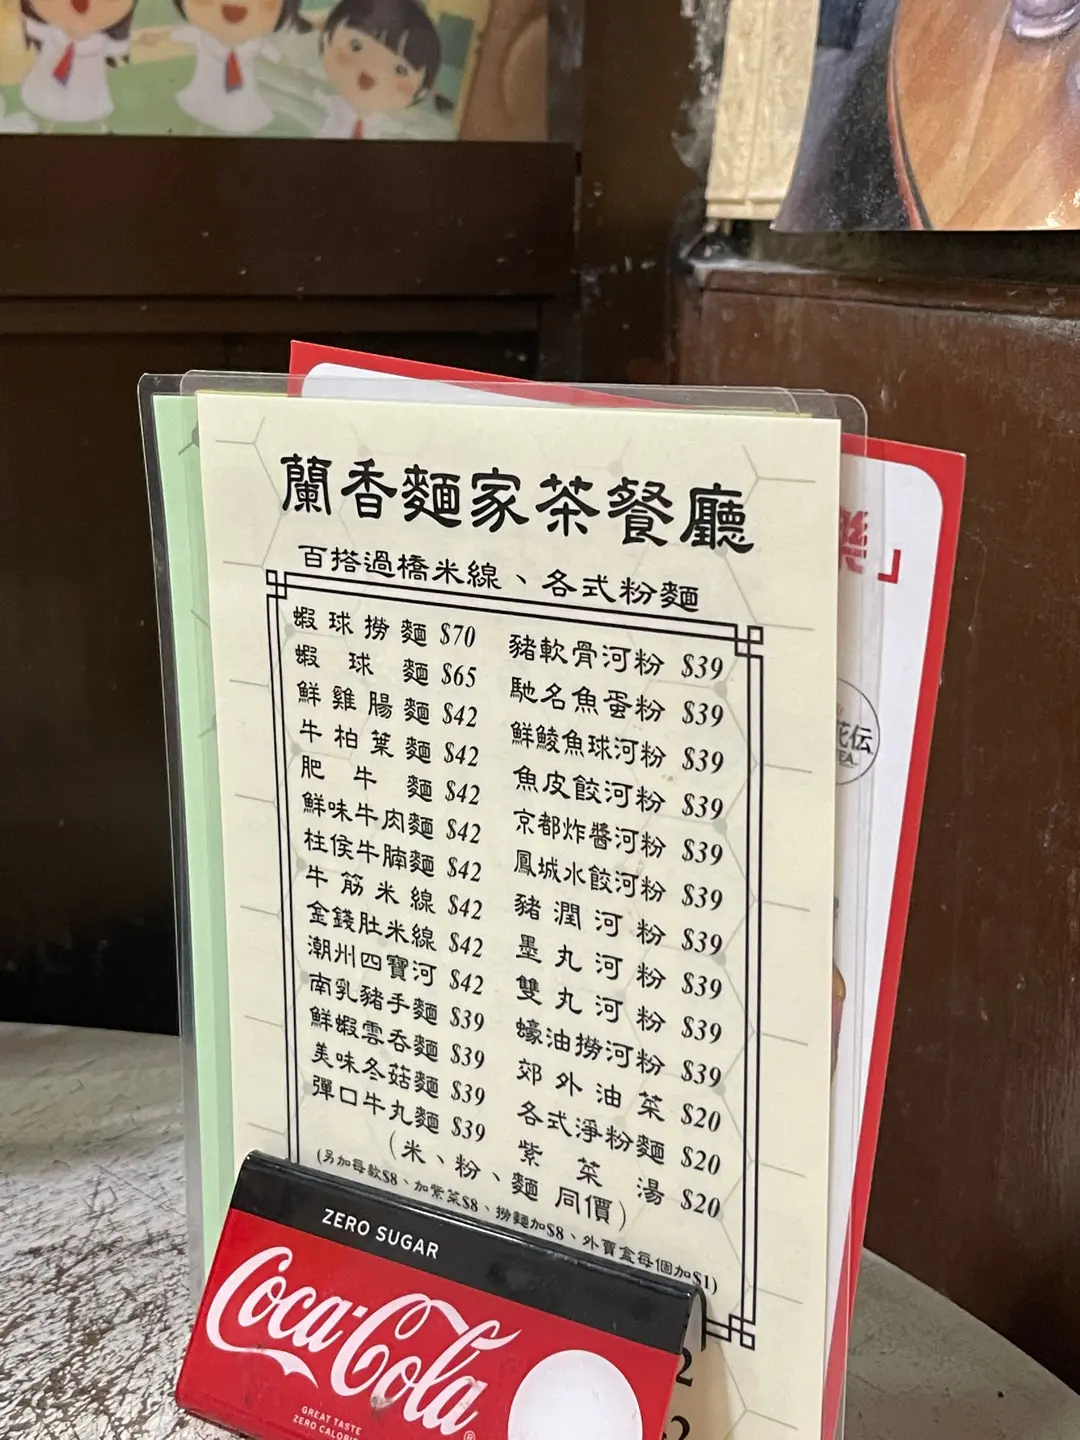 蘭香麵家茶餐廳
百搭過橋米線、各式粉麵
蝦球撈麵 $70
蝦球麵 $65
鮮雞腸麵 $42
牛柏葉麵 $42
肥牛麵 $42
鮮味牛肉麵 $42
柱侯牛腩麵 $42
牛筋米線 $42
金錢肚米線 $42
潮州四寶河 $42
南乳豬手麵 $39
鮮蝦雲吞麵 $39
美味冬菇麵 $39
彈口牛丸麵 $39
豬軟骨河粉 $39
馳名魚蛋粉 $39
鮮鯪魚球河粉 $39
魚皮餃河粉 $39
京都炸醬河粉 $39
鳳城水餃河粉 $39
豬潤河粉 $39
墨丸河粉 $39
雙丸河粉 $39
蠔油撈河粉 $39
郊外油菜 $20
各式淨粉麵 $20
紫菜湯 $20
(米、粉、麵 同價)
(另加每款$8、加紫菜$8、撈麵加$8、外賣盒每個加$1)
樂」
花伝
TEA.
ZERO SUGAR
Coca-Cola
GREAT TASTE
2